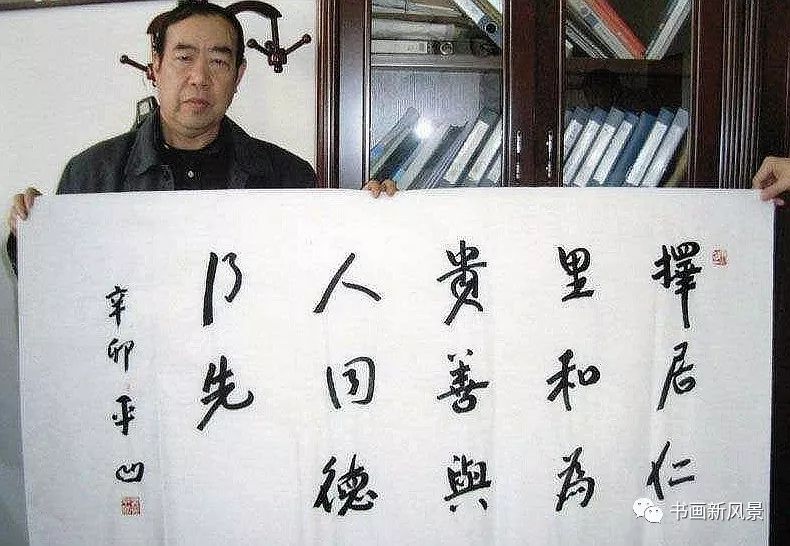 擇居仁
里和為
貴善與
人同德
行先
辛卯平凹
书画新风景